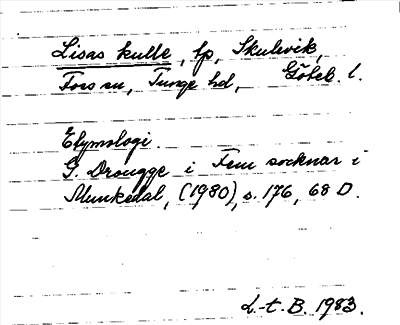 Lisas kulle, fp, Skulevik,
Foss sn, Tunge hd, Göteb. l.
Etymologi.
G. Drougge i Fem socknar i
Munkedal, (1980), s. 176, 68 D.
L.-t. B. 1983.